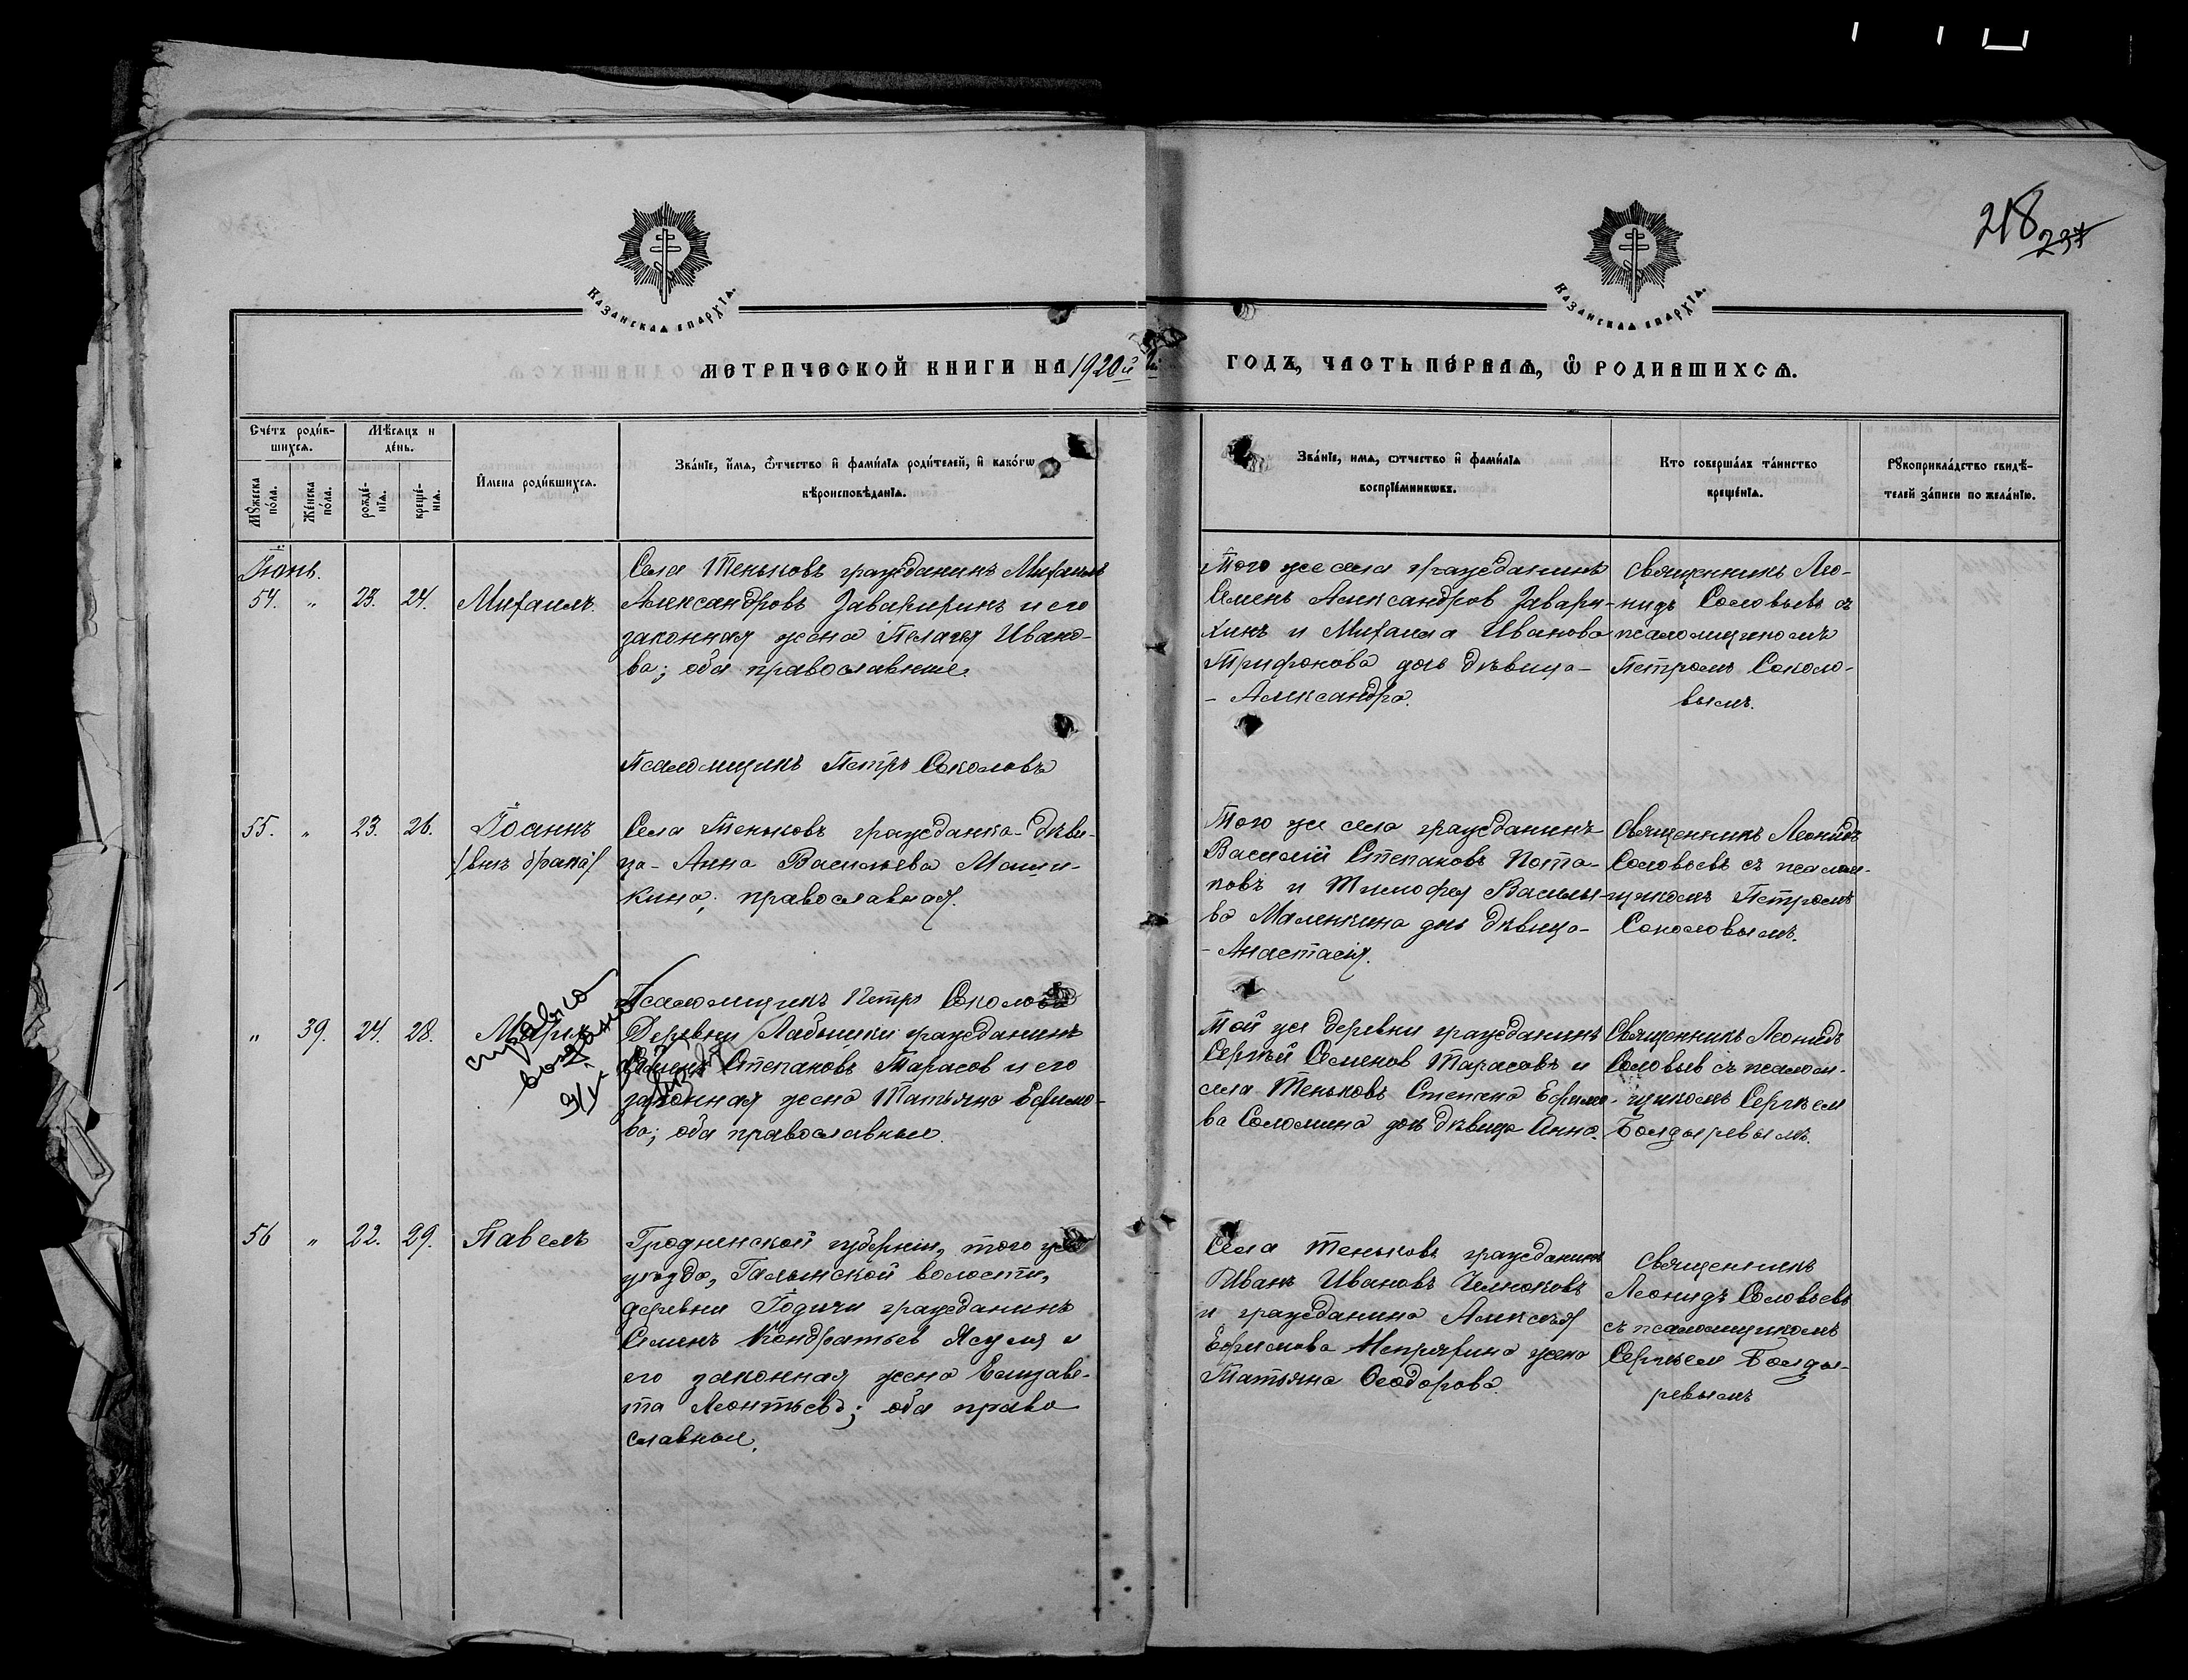 218 237
Казанская Епархїѧ.
Казанская Епархїѧ.
МЕТРИЧЕСКОЙ КНИГИ НА 1920й
ГОДЪ, ЧАСТЬ ПЕ́РВАѦ, Ѡ҆ РОДИВШИХСѦ.
Сче́тъ роди́в-
шихсѧ.
Мѣ́сѧцъ и
де́нь.
Мꙋ́жеска
по́ла.
Же́нска
по́ла.
рожде́-
нїѧ.
креще́-
нїѧ.
И҆мена роди́вшихсѧ.
Зва́нїе, и҆́мѧ, ѻ҆́тчество и҆ фами́лїѧ роди́телей, и҆ како́гѡ
вѣроисповѣ́данїѧ.
Зва́нїе, имѧ, ѻтчество и҆ фами́лїѧ
воспрїе́мникѡвъ.
Кто соверша́лъ та́инство
креще́нїѧ.
Рꙋкоприкла́дство свидѣ́-
телей за́писи по жела́нїю.
Іюнь.
54. " 23. 24. Михаилъ
Села Теньковъ гражданинъ Михаилъ
Александровъ Заварихинъ и его
законная жена Пелагея Ивано-
ва; оба православные.
Того же села гражданинъ
Семенъ Александров Завари-
хинъ и Михаила Иванова
Трифонова дочь девица-
- Александра.
Священникъ Лео-
нидъ Соловьевъ съ
псаломщикомъ
Петромъ Соколо-
вымъ.
Псаломщикъ Петръ Соколовъ
55. " 23. 26. Іоаннъ
/внѣ брака/
Села Теньковъ гражданка-дѣви-
ца- Анна Васильева
кина; православная.
Того же села гражданинъ
Василій Степановъ Пота-
повъ и Тимофея Василье-
ва Маленкина дочь дѣвица-
- Анастасія.
Священникъ Леонидъ
Соловьевъ съ псалом-
щикомъ Петромъ
Соколовымъ.
Псаломщикъ Петръ Соколовъ
" 39. 24. 28. Марія
справка
выдана
Деревни Лабышки гражданинъ
Семенъ Степановъ Тарасов и его
законная жена Татьяна Ефимо-
ва; оба православные.
Той же деревни гражданинъ
Сергѣй Семенов Тарасовъ и
села Теньковъ Степана Ефимо-
ва Соломина дочь дѣвица Анна.
Священникъ Леонидъ
Соловьев съ псалом-
щикомъ Сергѣем
Болдыревымъ.
56 " 22. 29. Павелъ
Гродненской губерніи, того же
уѣзда, Волости,
деревни гражданинъ
Семенъ Кондратьев и
его законная жена Елизаве-
та Леонтьева; оба право
славные.
Села Теньковъ гражданинъ
Иванъ Ивановъ Челноковъ
и гражданина Алексѣя
Ефимова жена
Татьяна Ѳеодорова.
Священникъ
Леонидъ Соловьевъ
съ псаломщикомъ
Сергѣем Болды-
ревымъ